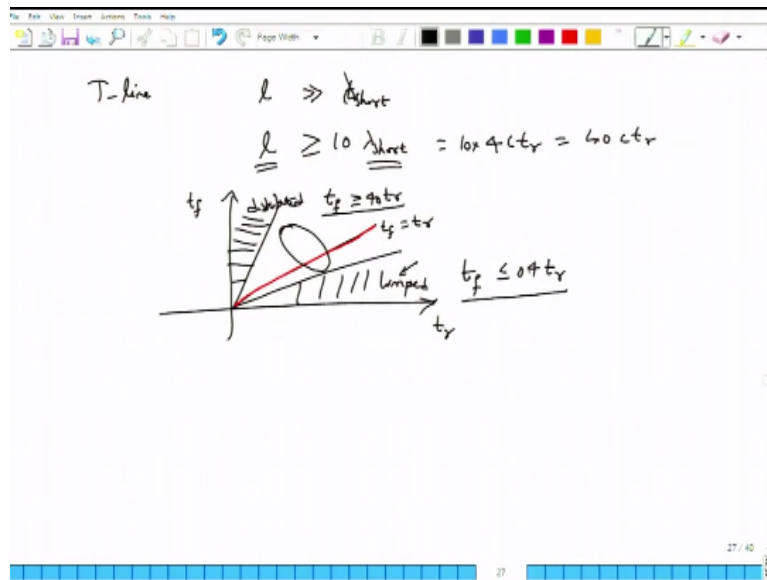 File Edit View Insert Actions Tools Help
Page Width
T-line l ≫ λshort
l ≥ 10 λshort = 10x 4 c tr = 40 c tr
tf distributed tf ≥ 40 tr
tf = tr
lumped tf ≤ 04 tr
tr
27 / 40
27